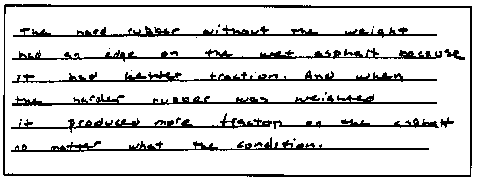 The hard rubber without the weight
had an edge on the wet asphalt because
it had better traction. And when
the harder rubber was weighted
it produced more traction on the asphalt
no matter what the condition.